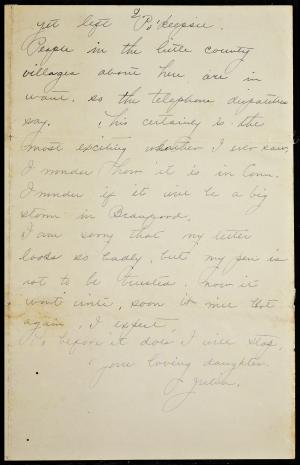 2.
yet left P'keepsie.
People in the little county
villages about here are in
want, so the telephone dispatches
say. This certainly is the
most exciting whether I ever saw.
I wonder how it is in Conn.
I wonder if it will be a big
storm in
I am sorry that my letter
looks so badly, but my pen is
not to be trusted. now it
wont write, soon it will blot
again, I expect,
So, before it does I will stop.
your loving daughter.
Julia.